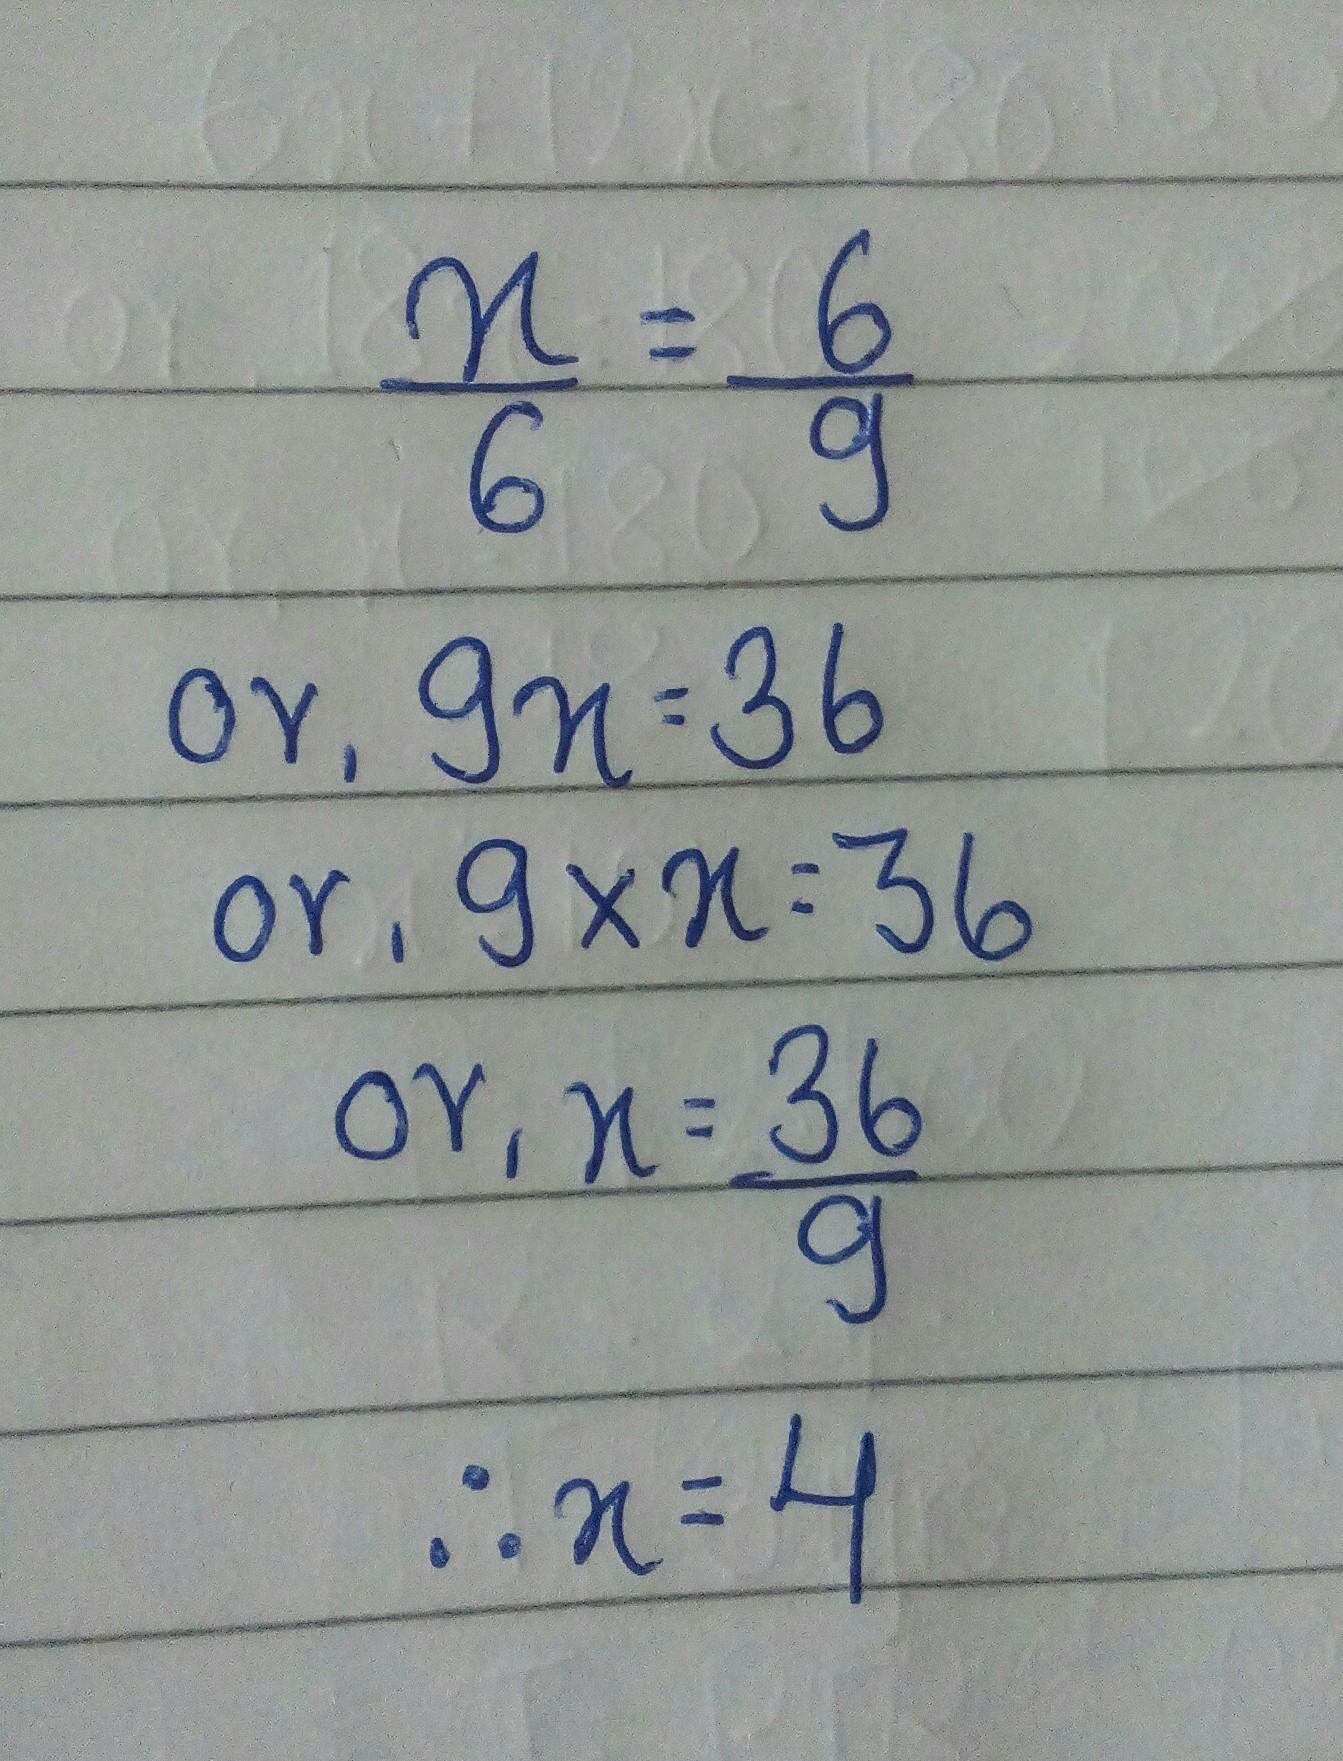 x/6 = 6/9
or, 9x=36
or, 9×x=36
or, x=36/9
∴x=4